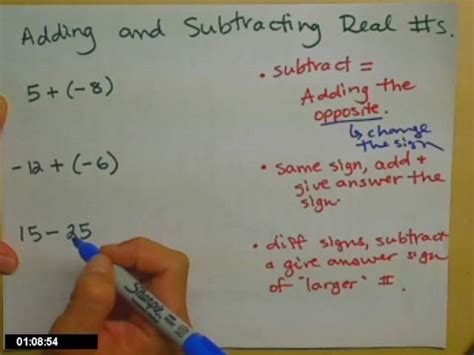 Adding and Subtracting Real #s.
5 + (-8)
-12 + (-6)
15 - 25
• subtract =
Adding the
opposite.
↳ change
the sign
• same sign, add +
give answer the
sign.
• diff signs, subtract
& give answer sign
of "larger" #.
Sharpie
01:08:54